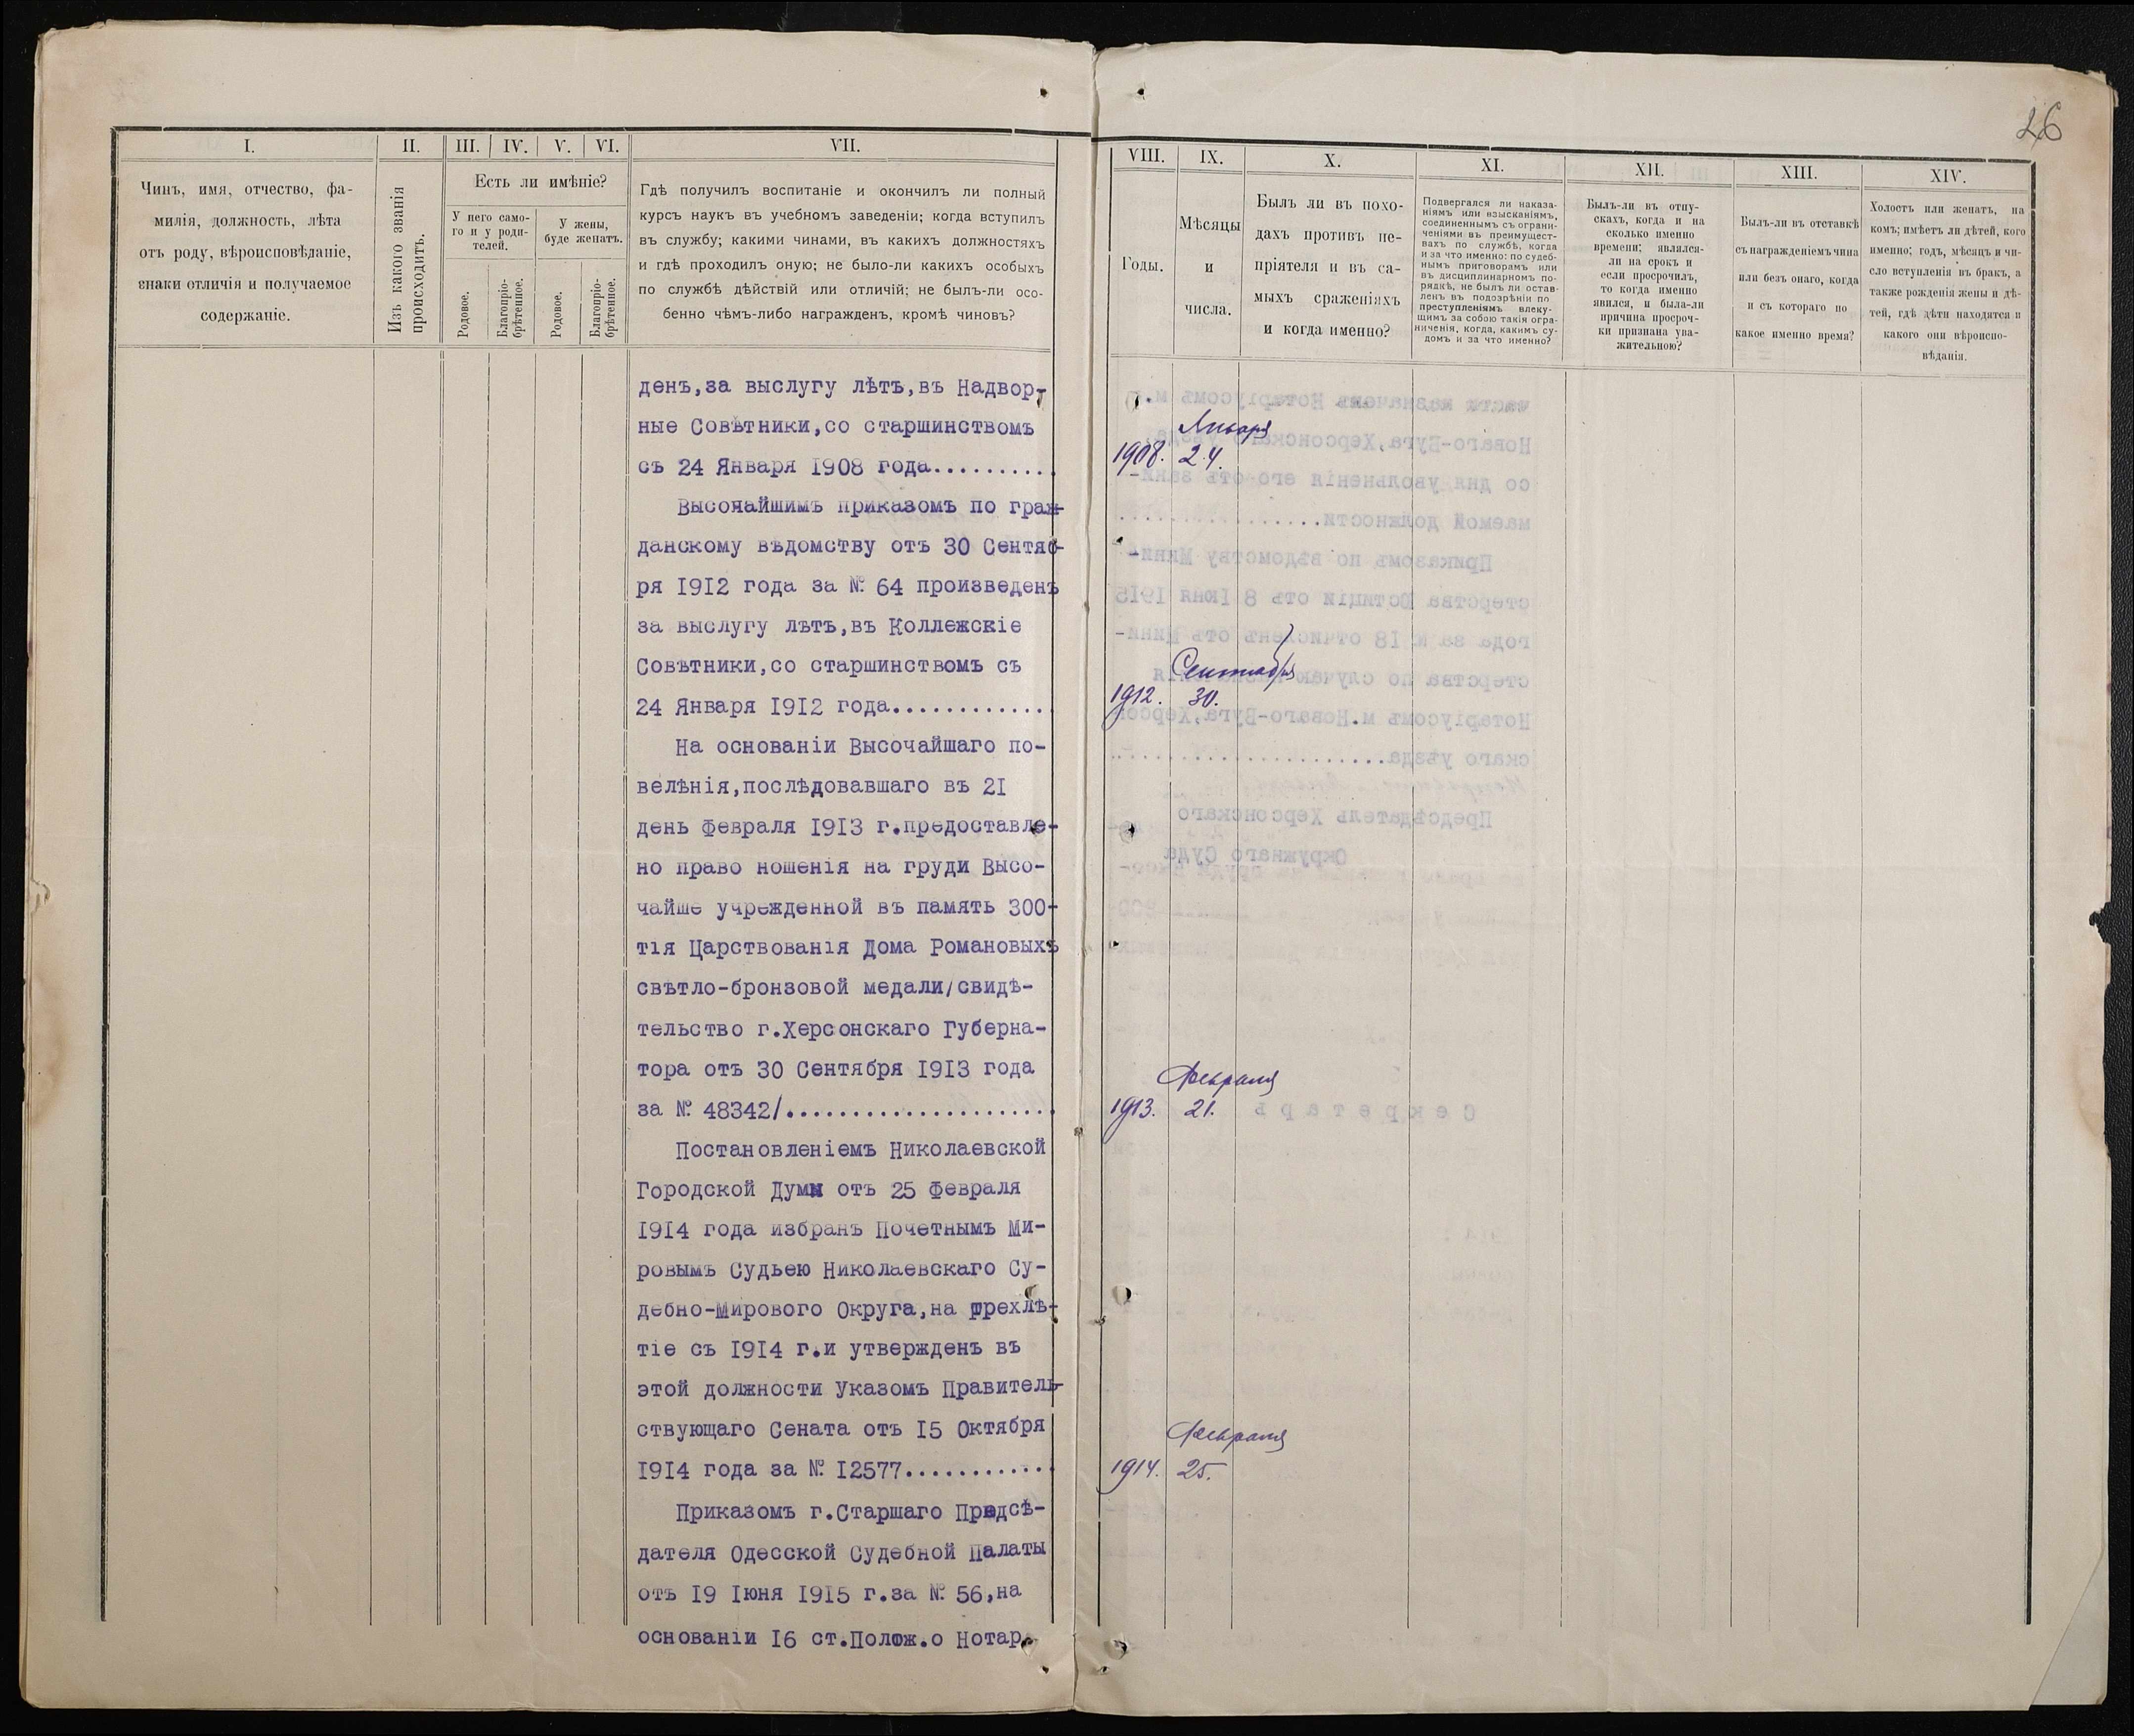 26
I.
II.
III.
IV.
V.
VI.
VII.
Чинъ, имя, отчество, фа-
милія, должность, лѣта
отъ роду, вѣроисповѣданіе,
знаки отличія и получаемое
содержаніе.
Изъ какого званія
происходитъ.
Есть ли имѣніе?
У него само-
го и у роди-
телей.
У жены,
буде женатъ.
Родовое.
Благопріо-
брѣтенное.
Родовое.
Благопріо-
брѣтенное.
Гдѣ получилъ воспитаніе и окончилъ ли полный
курсъ наукъ въ учебномъ заведеніи; когда вступилъ
въ службу; какими чинами, въ какихъ должностяхъ
и гдѣ проходилъ оную; не было-ли какихъ особыхъ
по службѣ дѣйствій или отличій; не былъ-ли осо-
бенно чѣмъ-либо награжденъ, кромѣ чиновъ?
денъ,за выслугу лѣтъ,въ Надвор-
ные Совѣтники,со старшинствомъ
съ 24 Января 1908 года..........
Высочайшимъ приказомъ по граж-
данскому вѣдомству отъ 30 Сентяб-
ря 1912 года за № 64 произведенъ
за выслугу лѣтъ,въ Коллежскіе
Совѣтники,со старшинствомъ съ
24 Января 1912 года.............
На основаніи Высочайшаго по-
велѣнія,послѣдовавшаго въ 21
день февраля 1913 г.предоставле-
но право ношенія на груди Высо-
чайше учрежденной въ память 300-
тія Царствованія Дома Романовыхъ
свѣтло-бронзовой медали/свидѣ-
тельство г.Херсонскаго Губерна-
тора отъ 30 Сентября 1913 года
за № 48342/.....................
Постановленіемъ Николаевской
Городской Думы отъ 25 февраля
1914 года избранъ Почетнымъ Ми-
ровымъ Судьею Николаевскаго Су-
дебно-Мирового Округа,на трехлѣ-
тіе съ 1914 г.и утвержденъ въ
этой должности Указомъ Правитель-
ствующаго Сената отъ 15 Октября
1914 года за № 12577............
Приказомъ г.Старшаго Предсѣ-
дателя Одесской Судебной Палаты
отъ 19 Іюня 1915 г.за № 56,на
основаніи 16 ст.Полож.о Нотар.
VIII.
IX.
X.
XI.
XII.
XIII.
XIV.
Годы.
Мѣсяцы
и
числа.
Былъ ли въ похо-
дахъ противъ не-
пріятеля и въ са-
мыхъ сраженіяхъ
и когда именно?
Подвергался ли наказа-
ніямъ или взысканіямъ,
соединеннымъ съ ограни-
ченіями въ преимущест-
вахъ по службѣ, когда
и за что именно: по судеб-
нымъ приговорамъ или
въ дисциплинарномъ по-
рядкѣ, не былъ ли остав-
ленъ въ подозрѣніи по
преступленіямъ влеку-
щимъ за собою такія огра-
ниченія, когда, какимъ су-
домъ и за что именно?
Былъ-ли въ отпу-
скахъ, когда и на
сколько именно
времени; являлся-
ли на срокъ и
если просрочилъ,
то когда именно
явился, и была-ли
причина просроч-
ки признана ува-
жительною?
Былъ-ли въ отставкѣ
съ награжденіемъ чина
или безъ онаго, когда
и съ котораго по
какое именно время?
Холостъ или женатъ, на
комъ; имѣетъ ли дѣтей, кого
именно; годъ, мѣсяцъ и чи-
сло вступленія въ бракъ, а
также рожденія жены и дѣ-
тей, гдѣ дѣти находятся и
какого они вѣроиспо-
вѣданія.
Января
1908. 24.
Сентября
1912. 30.
Февраля
1913. 21.
Февраля
1914. 25.